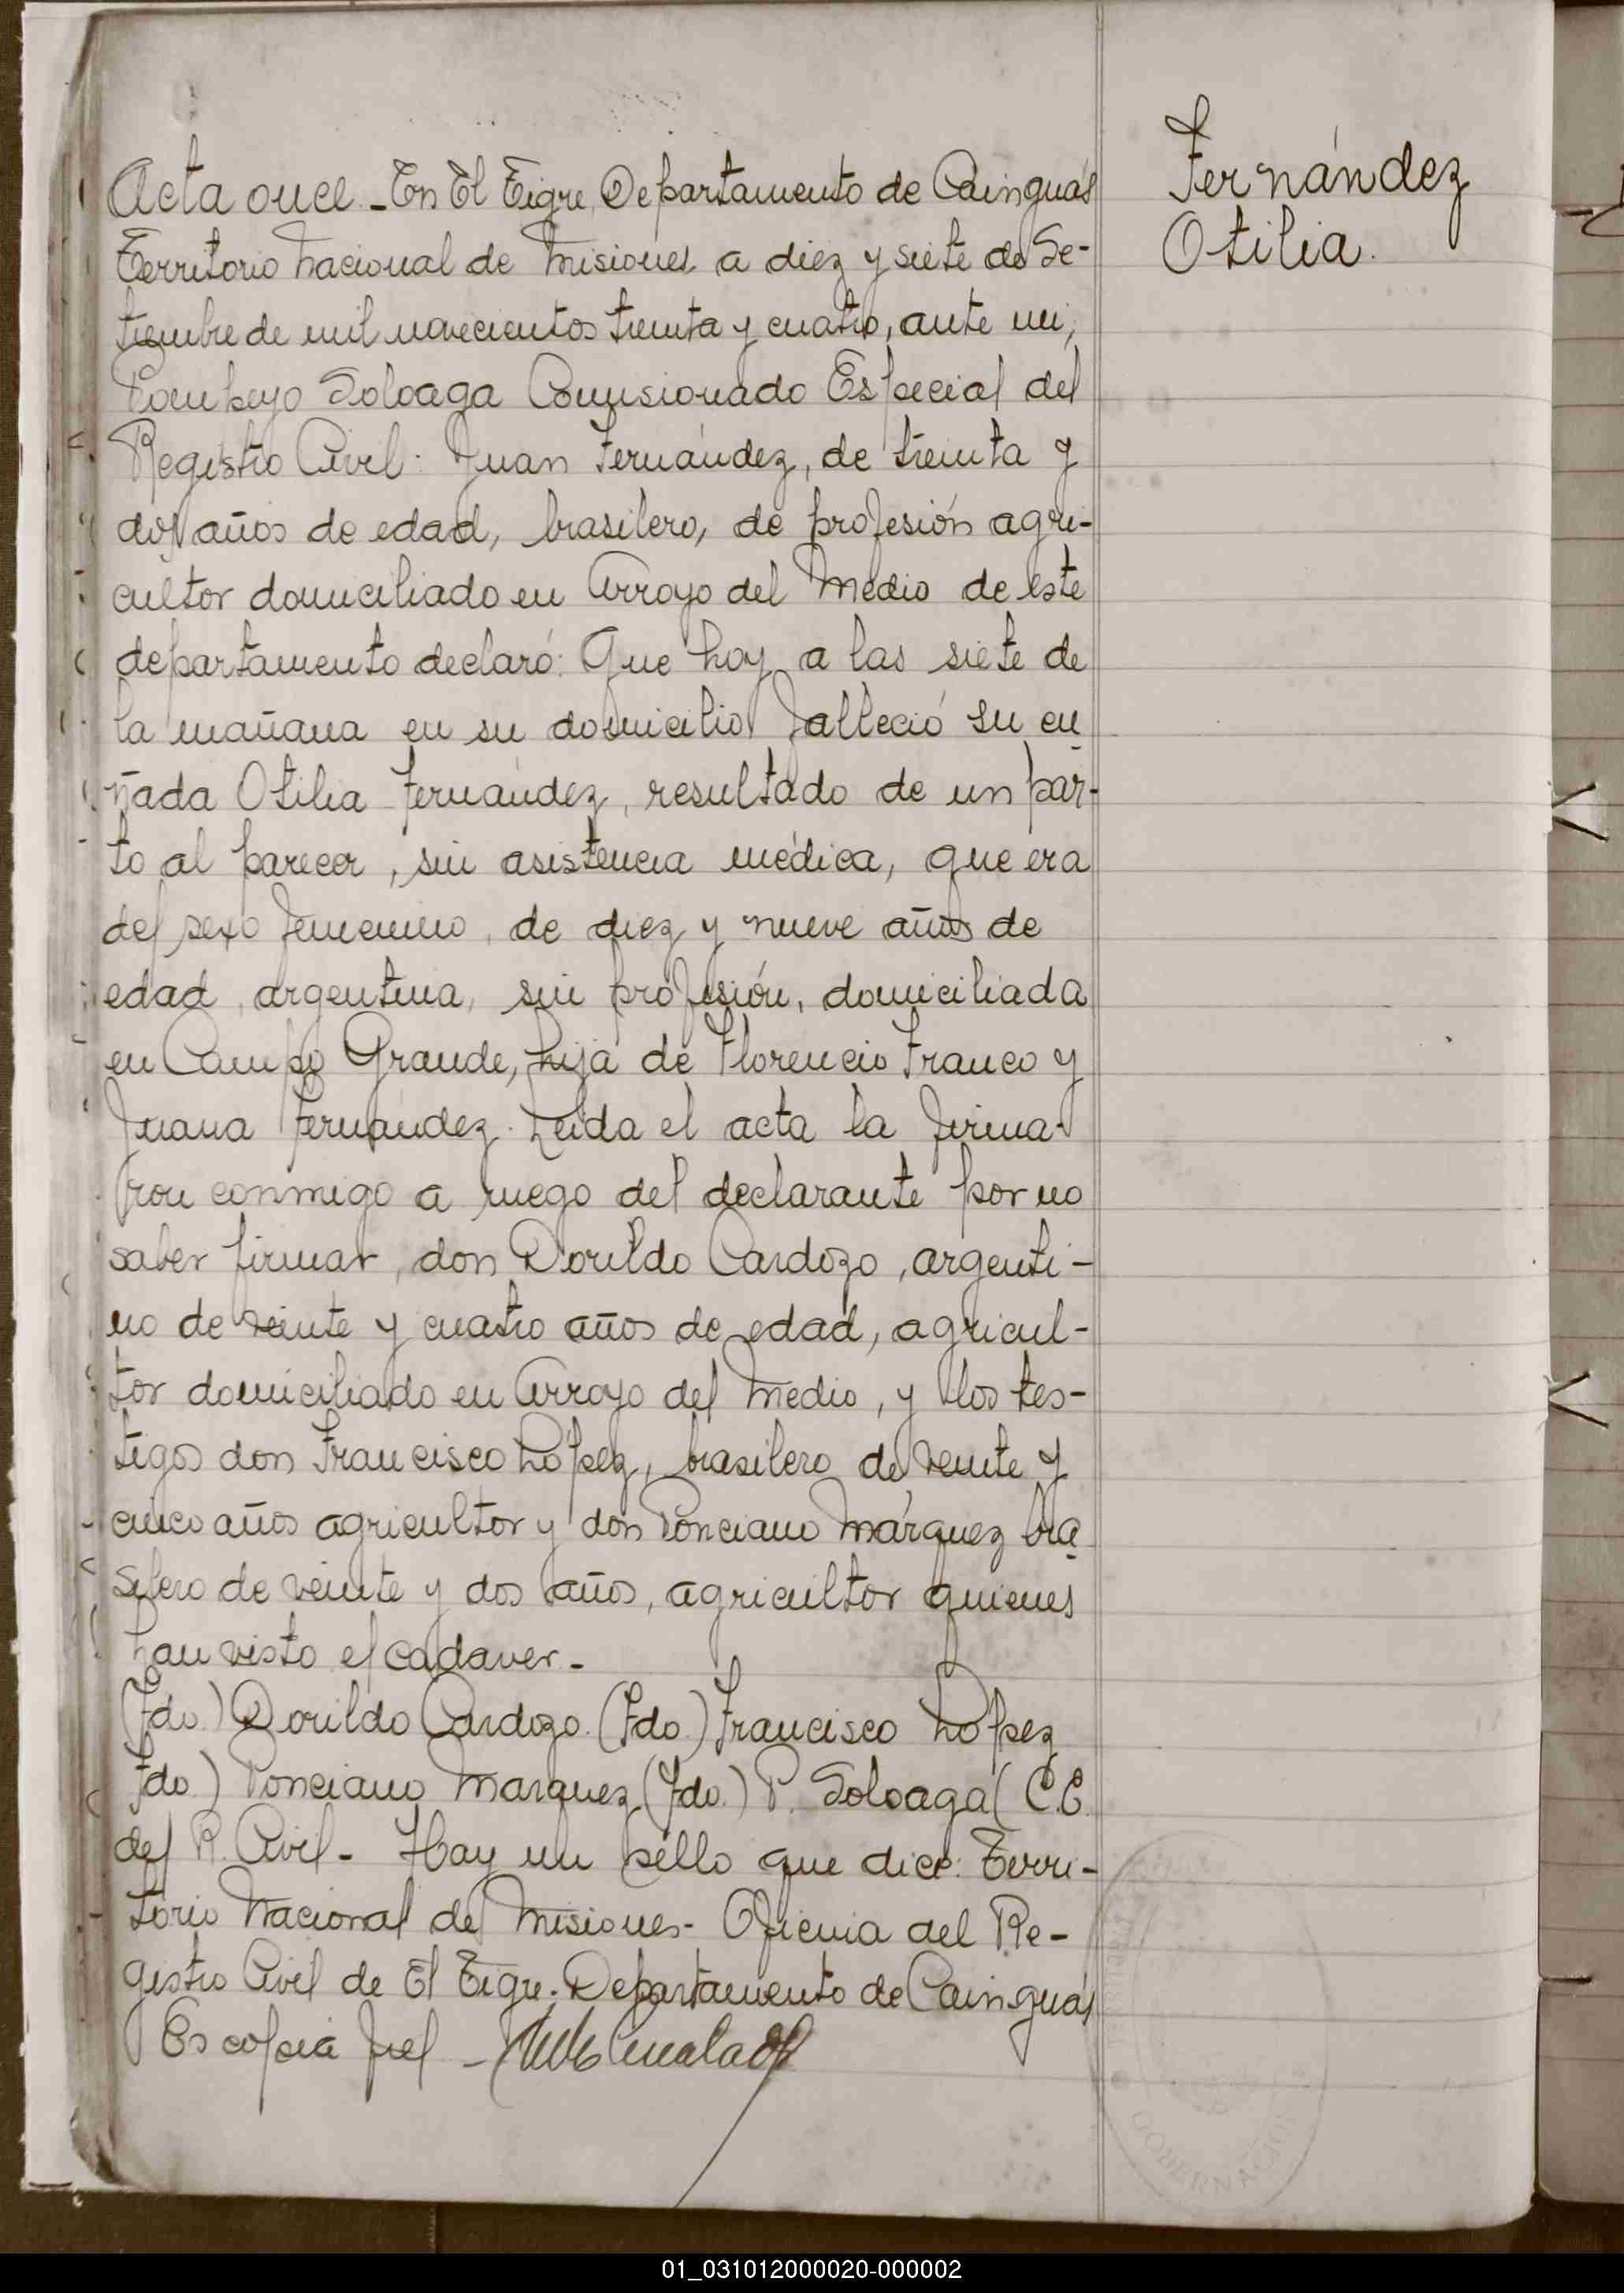 Acta once - En El Tigre, Departamento de Cainguás
Territorio Nacional de Misiones a diez y siete de Se-
tiembre de mil novecientos treinta y cuatro, ante mi,
Pompeyo Soloaga Comisionado Especial del
Registro Civil: Juan Fernández, de treinta y
dos años de edad, brasilero, de profesión agri-
cultor domiciliado en Arroyo del Medio de este
departamento declaró: Que hoy a las siete de
la mañana en su domicilio falleció su cu
ñada Otilia Fernández, resultado de un par-
to al parecer, sin asistencia médica, que era
del sexo femenino, de diez y nueve años de
edad, argentina, sin profesión, domiciliada
en Campo Grande, hija de Florencio Franco y
Juana Fernández. Leida el acta la firma-
ron conmigo a ruego del declarante por no
saber firmar, don Dorildo Cardozo, argenti-
no de veinte y cuatro años de edad, agricul-
tor domiciliado en Arroyo del Medio, y los tes-
tigos don Francisco López, brasilero de veinte y
cinco años agricultor y don Ponciano Márquez bra
silero de veinte y dos años, agricultor quienes
han visto el cadaver -
(Fdo.) Dorildo Cardozo. (Fdo.) Francisco López
Fdo.) Ponciano Marquez (Fdo.) P. Soloaga (C.E.
del R. Civil - Hay un sello que dice: Terri-
torio Nacional de Misiones - Oficina del Re-
gistro Civil de El Tigre. Departamento de Cainguás
Es copia fiel -
Fernández
Otilia.
GOBERNACIÓN
01_031012000020-000002